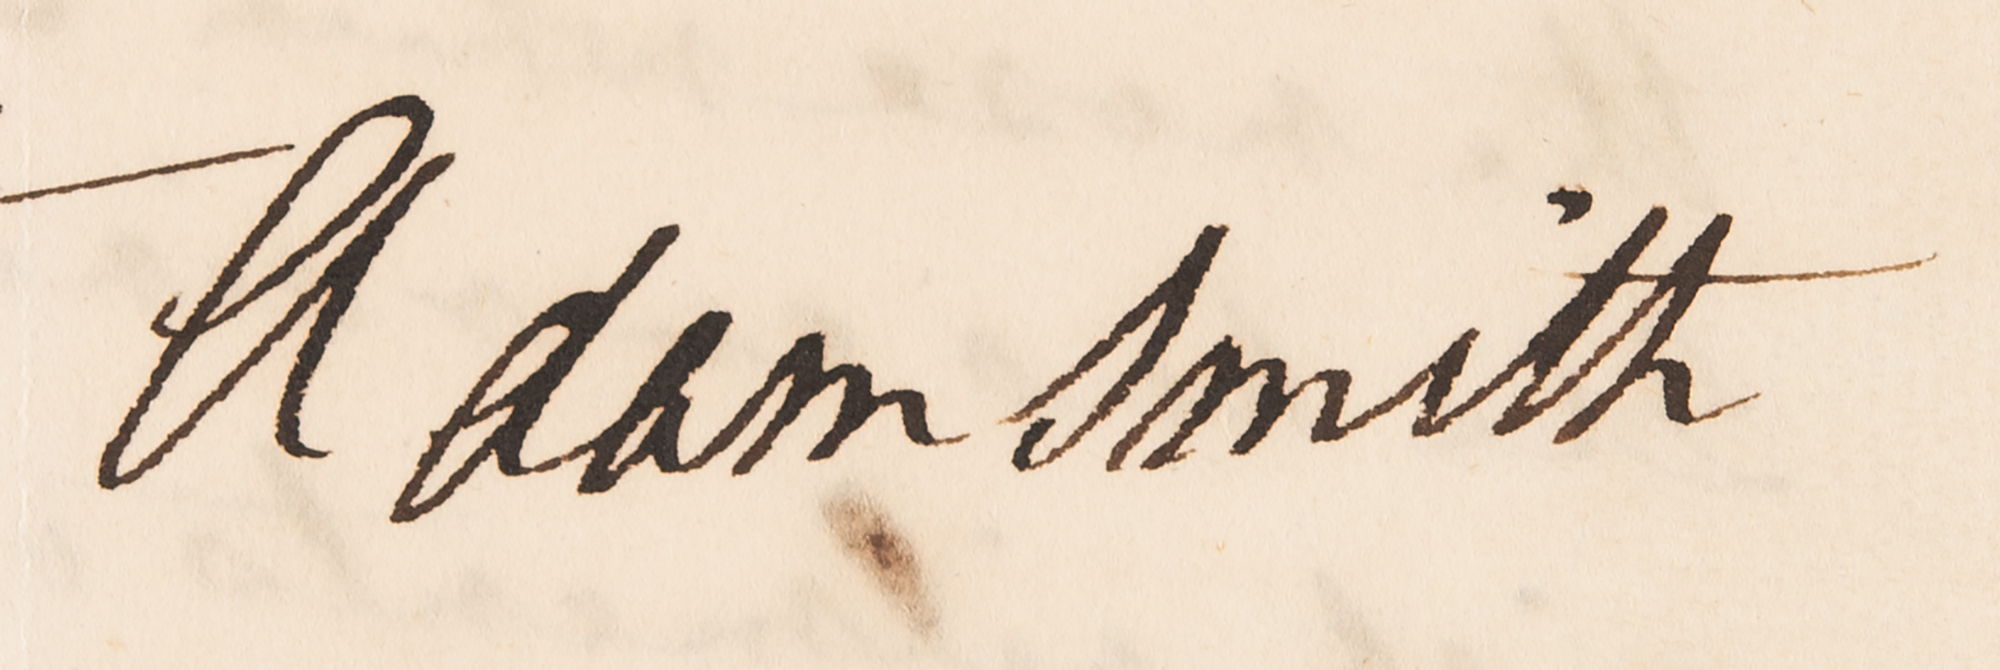 Adam Smith